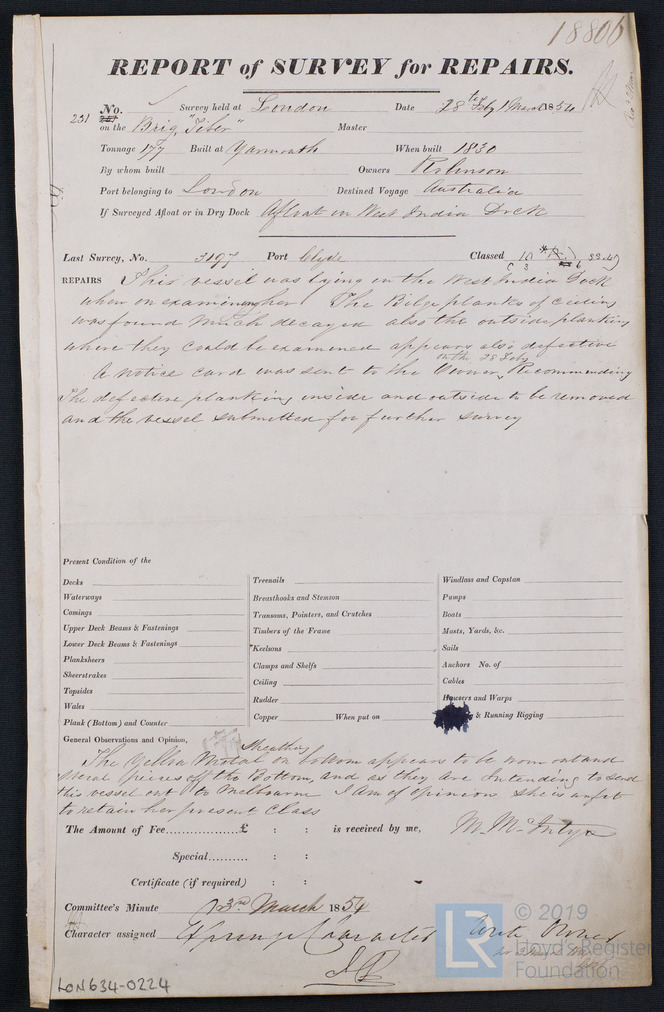 18806
REPORT of SURVEY for REPAIRS.
No. 251 Survey held at London Date 28th Feby 1 March 1854
on the Brig "Tiber" Master
Tonnage 177 Built at Yarmouth When built 1830
By whom built Owners Robinson
Port belonging to London Destined Voyage Australia
If Surveyed Afloat or in Dry Dock Afloat in West India Dock
Last Survey, No. 3197 Port Clyde Classed 10
REPAIRS This vessel was lying in the West India Dock
when on examining her The Bilge planks of Ceiling
was found much decayed also the outside planking
where they could be examined appears also defective
on the 28 Feby
A notice card was sent to the Owner, Recommending
The defective planking inside and outside to be removed
and the vessel submitted for further survey
Present Condition of the
Decks
Waterways
Comings
Upper Deck Beams & Fastenings
Lower Deck Beams & Fastenings
Planksheers
Sheerstrakes
Topsides
Wales
Plank (Bottom) and Counter
Treenails
Breasthooks and Stemson
Transoms, Pointers, and Crutches
Timbers of the Frame
Keelsons
Clamps and Shelfs
Ceiling
Rudder
Copper When put on
Windlass and Capstan
Pumps
Boats
Masts, Yards, &c.
Sails
Anchors No. of
Cables
Hawsers and Warps
& Running Rigging
General Observations and Opinion,
Sheathing
The Yellow Metal on bottom appears to be worn out and
several pieces off the Bottom, and as they are intending to send
this vessel out to Melbourne I am of opinion she is unfit
to retain her present Class
The Amount of Fee £ : : is received by me, M. McIntyre
Special : :
Certificate (if required) : :
Committee's Minute 3rd March 1854
Character assigned Expunge Character write Owner
LON634-0224
LR
© 2019
Lloyd's Register
Foundation